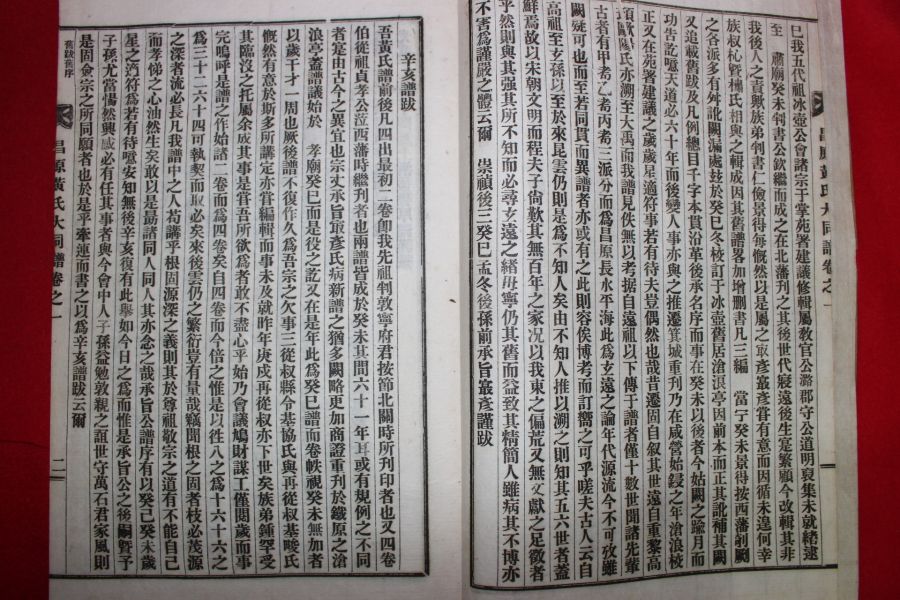 巳我五代祖冰壺公會諸宗于掌苑署建議修輯敎官公潞郡守公道明裒集未就緖逮
至　肅廟癸未判書公欽繼而成之在北藩刋之其後世代寢遠後生寔繁顧今改輯其非
我後人之責歟族弟判書仁儉景得每慨然以是屬之㝡彦㝡彦嘗有意而因循未遑何幸
族叔杺曁橚氏相與之輯成因其舊譜畧加增刪書凡二編　當宁癸未景得按西藩剞劂
之各派多有舛訛闕漏處玆於癸巳冬校訂于冰壺舊居滄浪亭因前本而正其訛補其闕
又追載舊跋及凡例總目千字本貫沿革後承名序而事在癸未以後者今姑闕之踰月而
功告訖噫天道必六十年而後變人事亦與之推遷箕城重刋乃在咸營始鋟之年滄浪校
正又在苑署建議之歲歲星適符事若有待夫豈偶然也哉昔遷固自叙其世遠自重黎高
頊歐陽氏亦溯至大禹而我譜見佚無以考据自遠祖以下傳于譜者僅十數世聞諸先輩
古者有甲者乙者丙者三派分而爲昌原長水平海此爲玄遠之論年代源流今不可攷雖
闕疑可也而至若同貫而異譜者亦或有之此則容俟博考而訂嚮之可乎嗟夫古人云自
高祖以至玄孫以至於來是雲仍則是爲不知人矣由不知人推以溯之則知其五六世者蓋
鮮焉故以宋朝文明而程夫子尙歎其無百年之家况以我東之偏荒又無文獻之足徵者
乎然則與其强其所不知而必尋玄遠之緖毋寧仍其舊而益致其精簡人雖病其不博亦
不害爲謹嚴之體云爾　崇禎後三癸巳孟冬後孫前承旨㝡彦謹跋
昌原黃氏大同譜卷之一
辛亥譜跋
吾黃氏譜前後凡四出最初二卷卽我先祖判敦寧府君按節北關時所刋印者也又四卷
伯從祖貞孝公涖西藩時繼刋者也兩譜皆成於癸未其間六十一年耳或有規例之不同
者寔由古今之異宜也宗丈承旨㝡彦氏病新譜之猶多闕略更加商證重刋於鐵原之滄
浪亭蓋譜議始於　孝廟癸巳而是役之訖又在是年此爲癸巳譜而卷帙視癸未無加者
以歲干才一周也厥後譜不復作久爲吾宗之欠事三從叔縣令基協氏與再從叔基畯氏
慨然有意於斯多所講定亦嘗編輯而事未及就昨年庚戌再從叔亦下世矣族弟鍾罕受
其臨沒之托屬余成其事是嘗吾所欲爲者敢不盡心乎始乃會議鳩財謀工僅閱歲而事
完嗚呼是譜之作始諸二卷而爲四卷矣自四卷而今倍之惟是以徃八之爲十六十六之
爲三十二六十四可執契而取必矣來後雲仍之繁衍豈有量哉竊聞根之固者枝必茂源
之深者流必長凡我譜中之人苟講乎根固源深之義則其於尊祖敬宗之道有不能自已
而孝悌之心油然生矣敢以是勗諸同人同人其亦念之哉承旨公譜序有以癸巳癸未歲
星之適符爲若有待噫安知無後辛亥復有此擧如今日之爲而惟是承旨公之後嗣曁予
子孫尤當惕然興感必有任其事者與今會中人子孫益勉敦親之誼世守萬石君家風則
是固僉宗之所同願者也於是乎牽連而書之以爲辛亥譜跋云爾
舊跋舊序
昌原黃氏大同譜卷之一
二